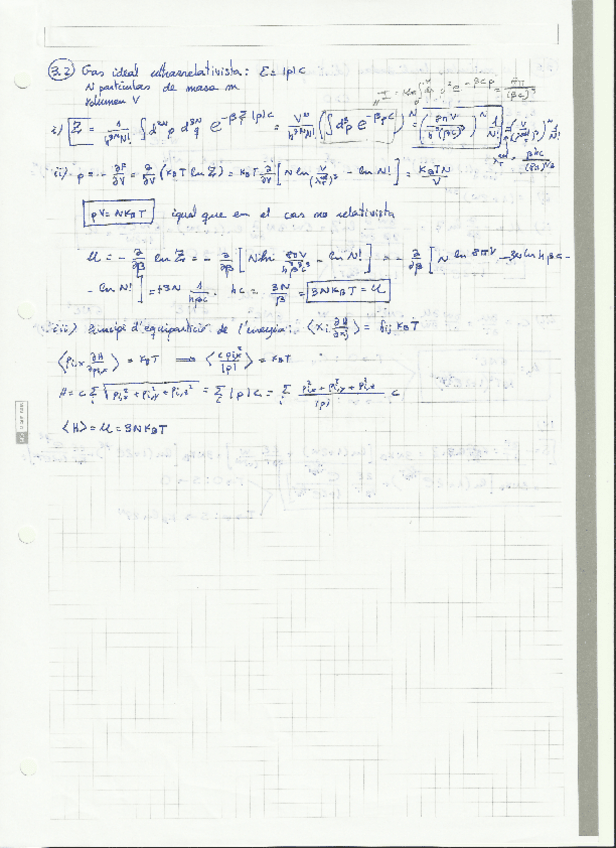 3.2) Gas ideal ultrarelativista: ε = |p| c
N partículas de masa m
Volumen V
I = 4π ∫ dp p² e^{-βcp} = 8π/(βc)³
i) Z = 1/(h^{3N} N!) ∫ d^{3N}p d^{3N}q e^{-β Σ |p| c} = V^N/(h^{3N} N!) (∫ d³p e^{-βpc})^N = (8πV/(h³(βc)³))^N 1/N! = (V/(λ_T)³)^N 1/N!
ii) p = - ∂F/∂V = ∂/∂V (K_B T ln Z) = K_B T ∂/∂V [N ln V/(λ_T)³ - ln N!] = K_B T N/V
pV = N K_B T igual que en el cas no relativista
U = - ∂/∂β ln Z = - ∂/∂β [N ln 8πV/(h³β³c³) - ln N!] = - ∂/∂β [N ln 8πV - 3N ln hβc -
- ln N!] = +3N 1/(hβc) · hc = 3N/β = 3N K_B T = U
iii) Principi d'equipartició de l'energia: ⟨x_i ∂H/∂x_j⟩ = δ_ij K_B T
⟨p_{i,x} ∂H/∂p_{i,x}⟩ = K_B T ⟹ ⟨c p_{i,x}²/|p|⟩ = K_B T
H = c Σ_i √(p_{i,x}² + p_{i,y}² + p_{i,z}²) = Σ_i |p| c = Σ_i (p_{i,x}² + p_{i,y}² + p_{i,z}²)/|p| c
⟨H⟩ = U = 3N K_B T